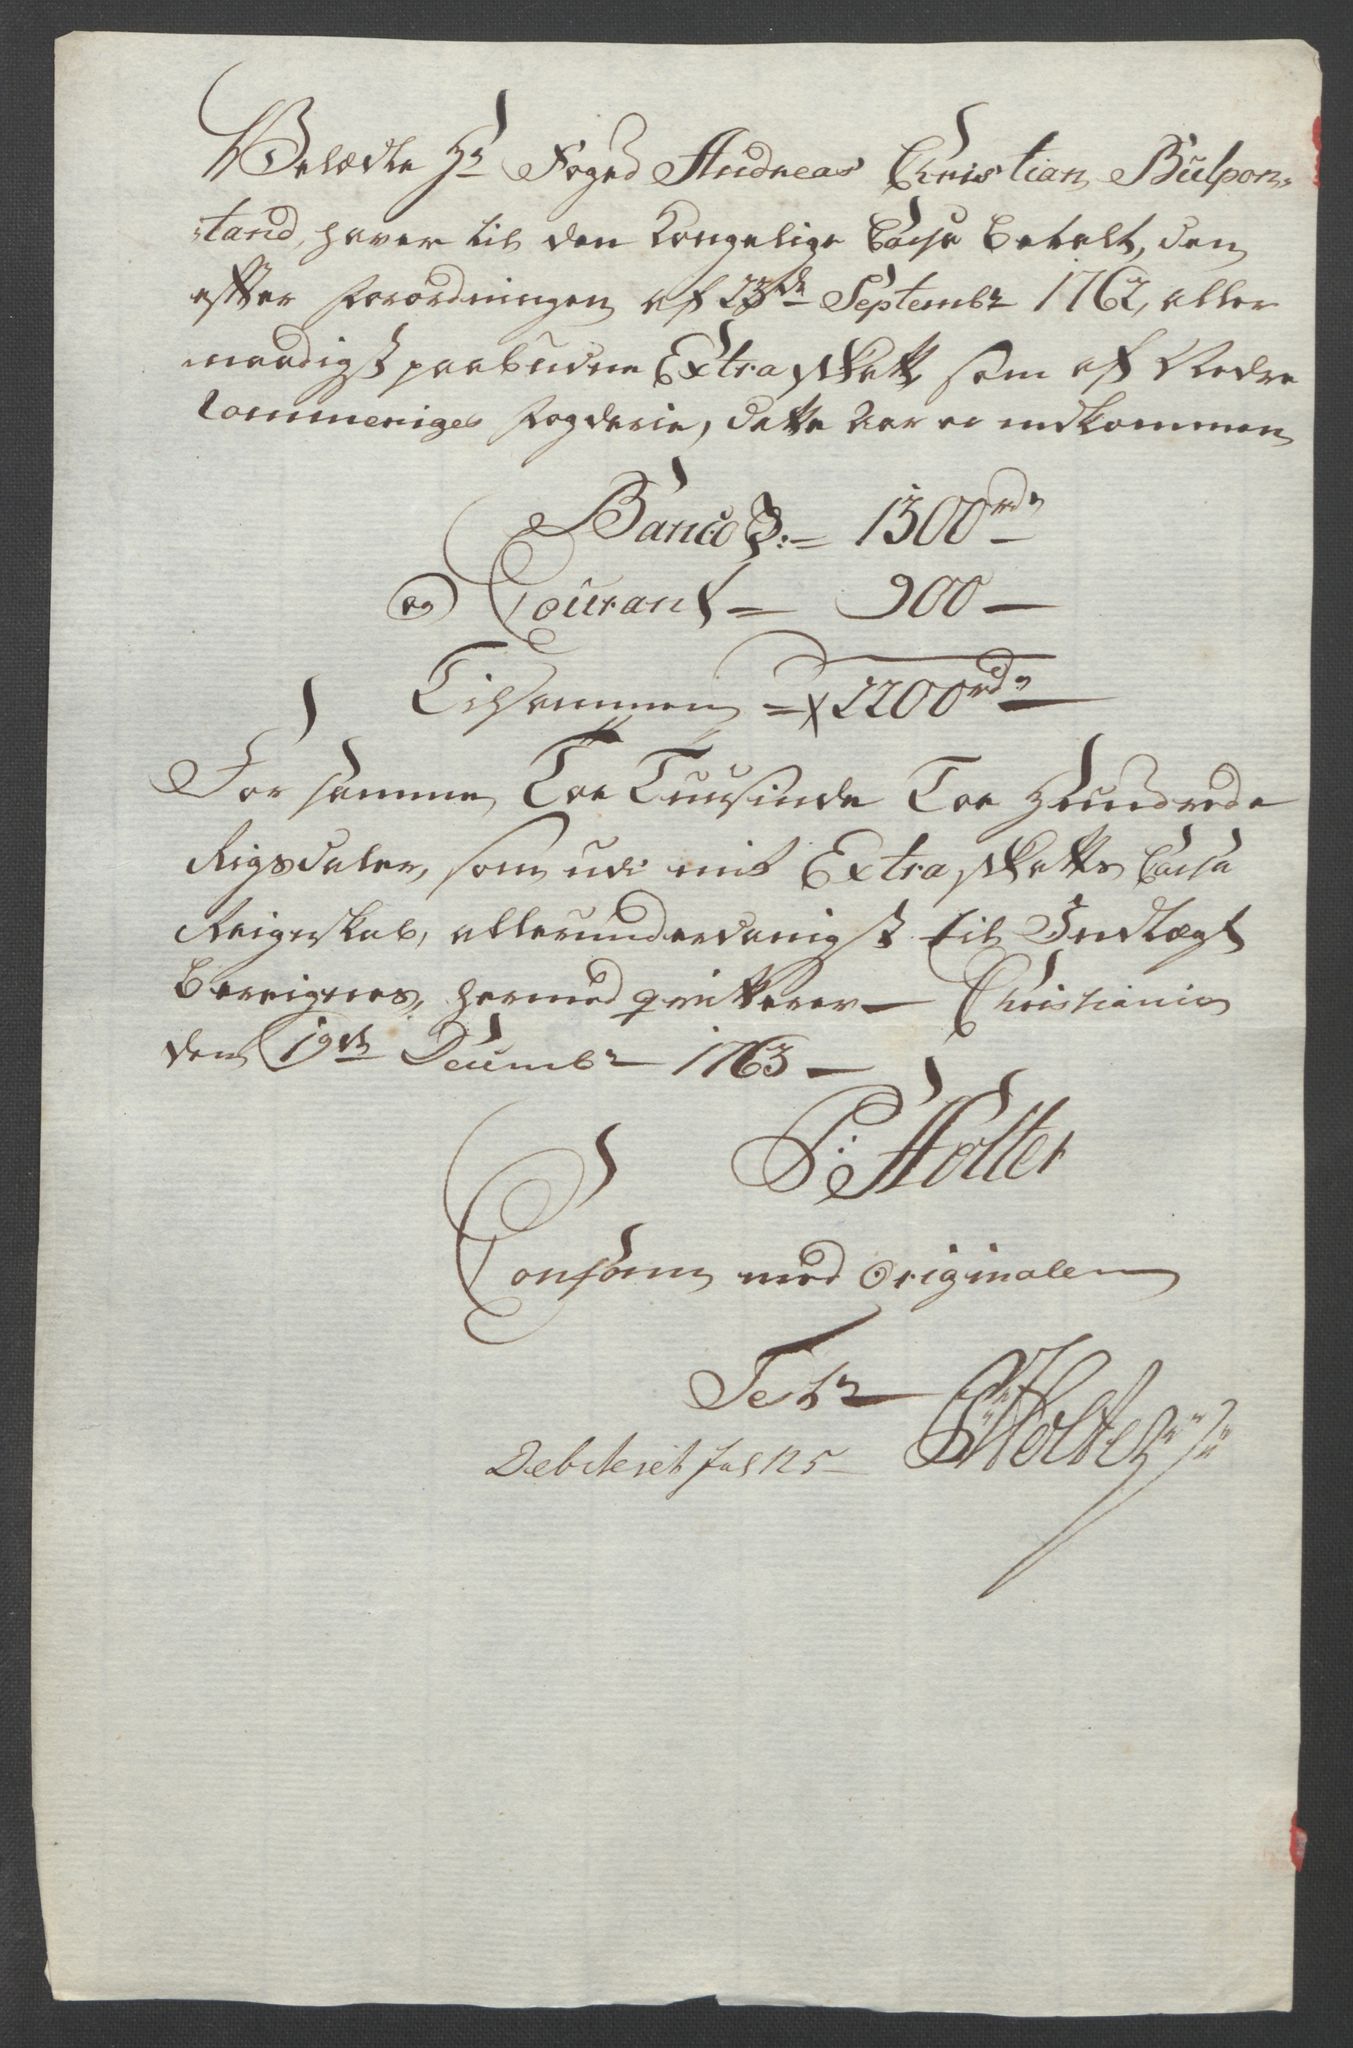 Velædle Hr Foged Andreas Christian Bülpon-
stand, haver til den Kongelige Cassa betalt, den
efter Forordningen af 23de Septembr 1762, aller
naadigst paabudne Extra Skatt, som af Nedre
Rommeriges Fogderie, dette Aar er indkommen
Banco Z: = 1300 rdr
og Courant = 900 —
Tilsammen = 2200 rdr
For samme Toe Tuusinde Toe Hundrede
Rigsdaler, som udi mit Extra Skatts Cassa
Reignskab, allerunderdanigst til Indtægt
bereignes, hermed qvitterer — Christiania
den 19de Decembr 1763 —
P: Holter
Conform med Originalen
Test:
P Holter
Debiteret fol 125